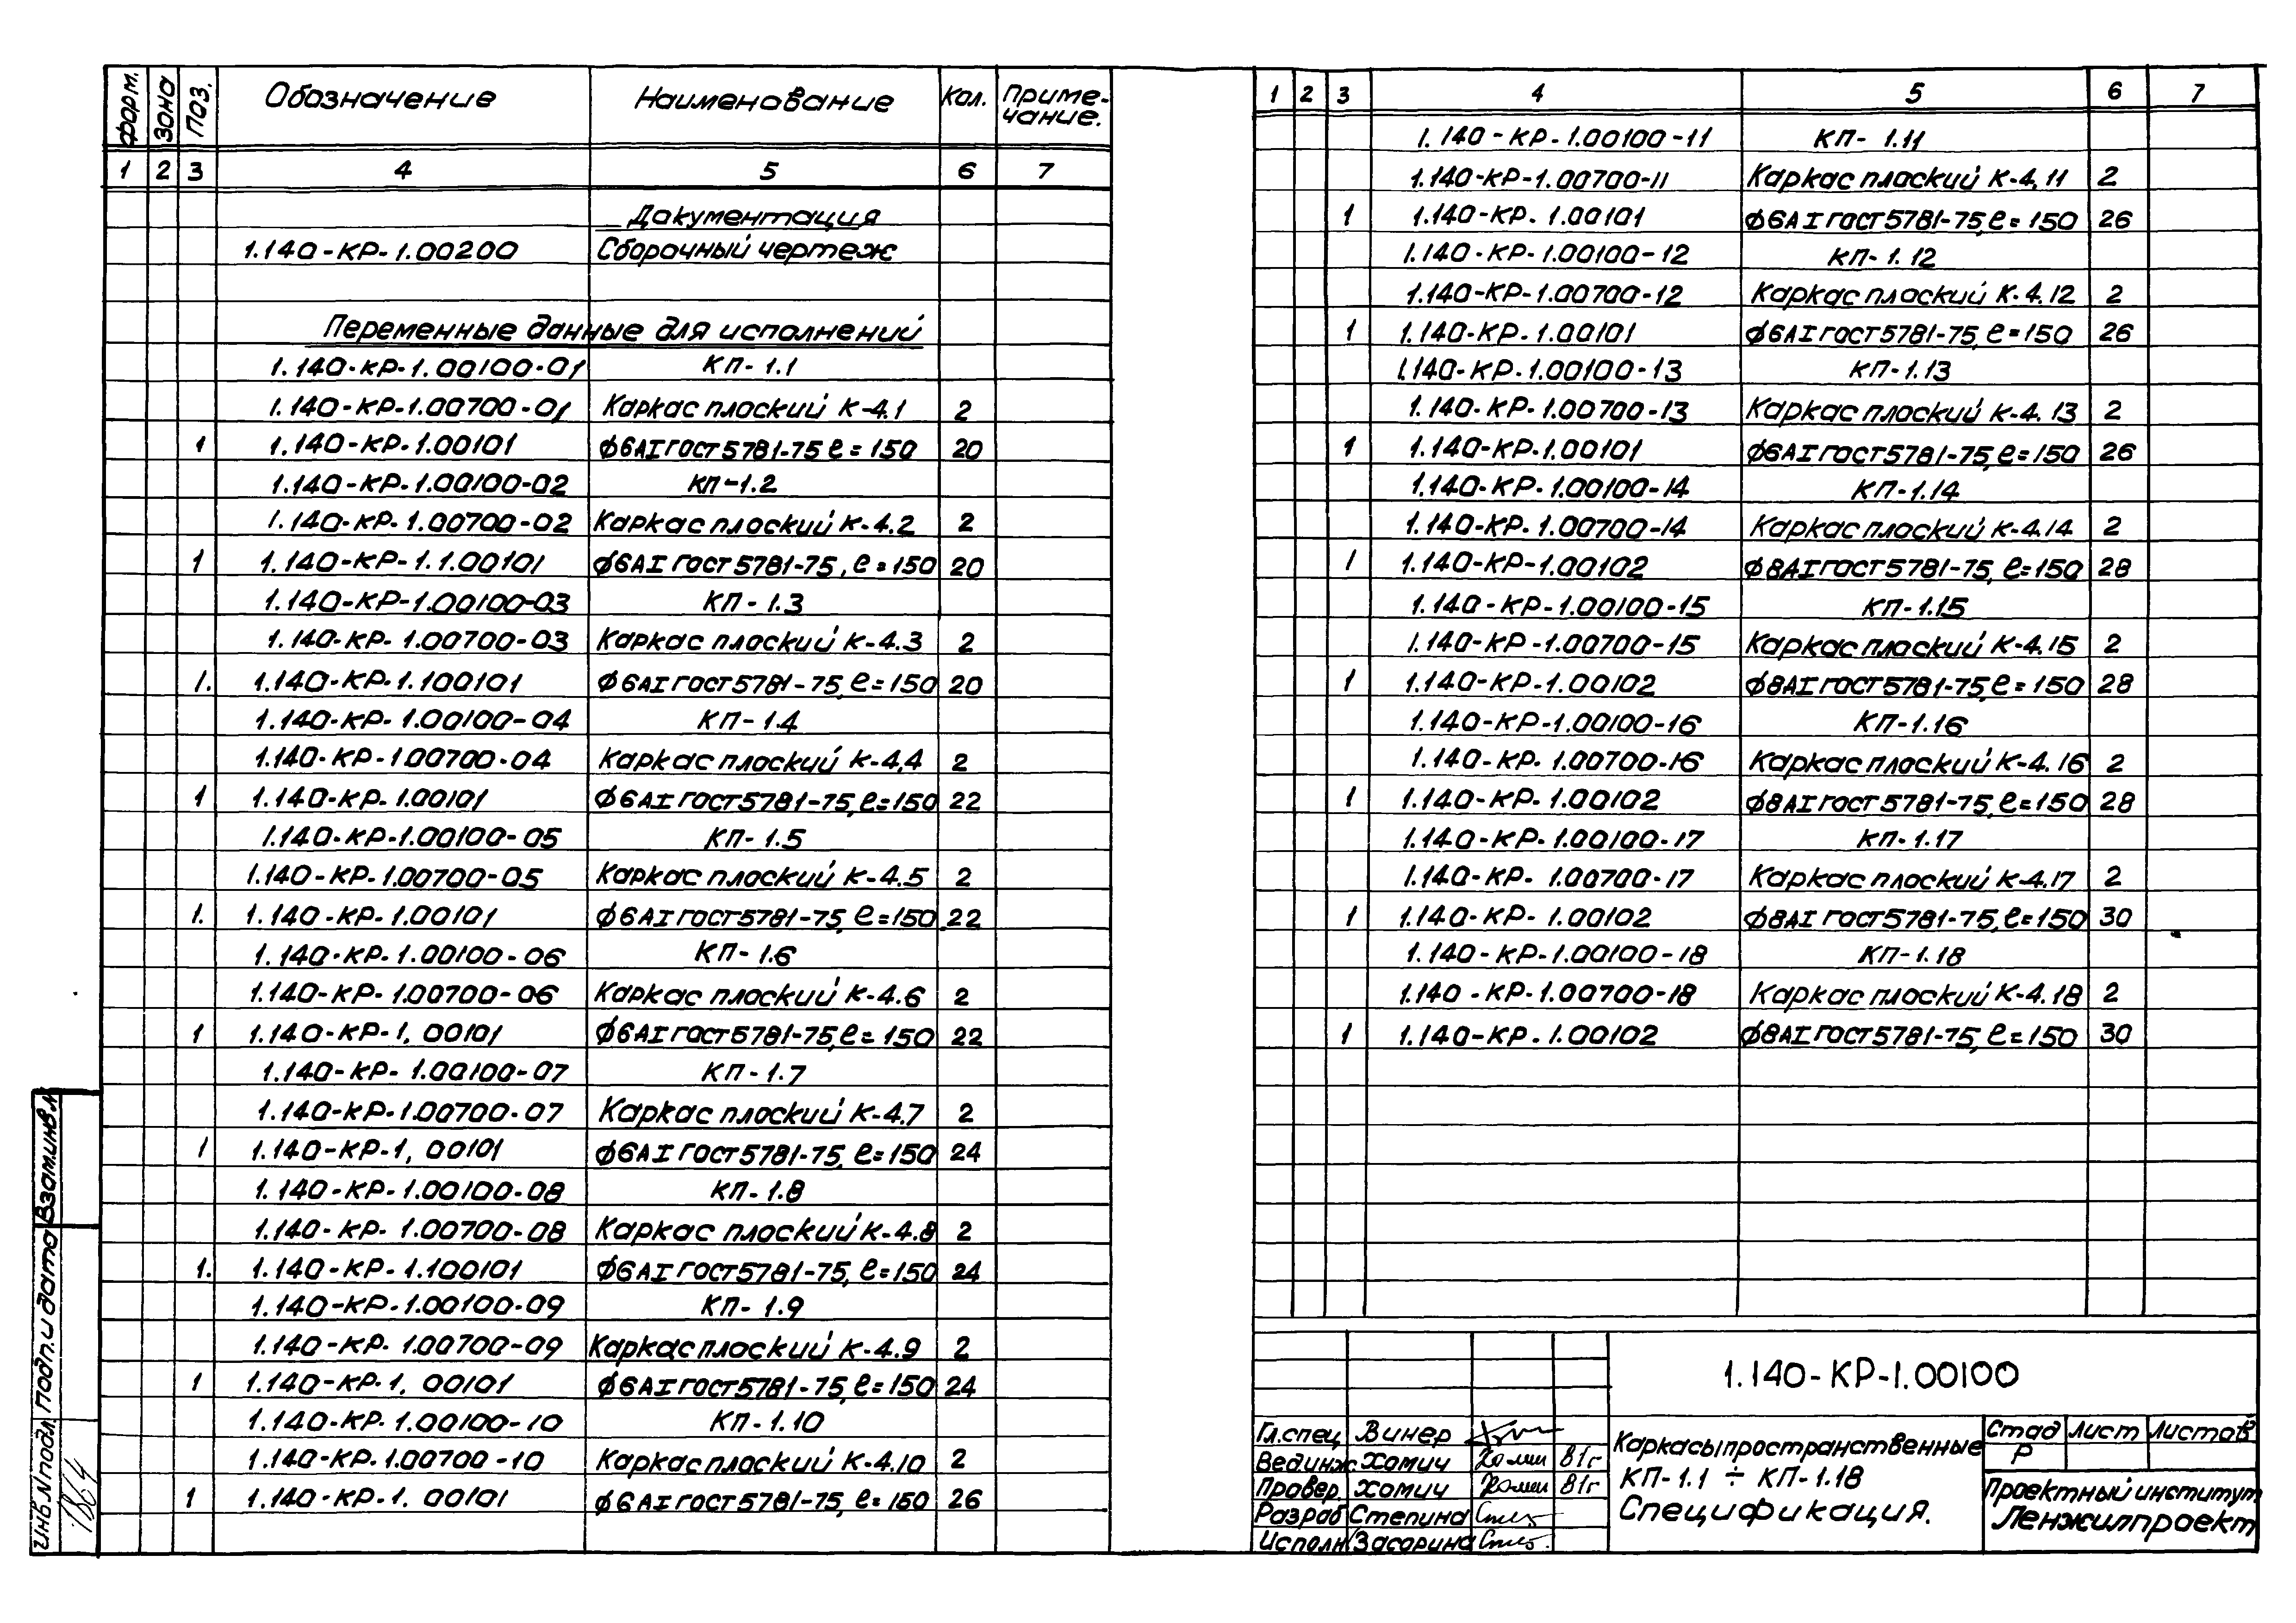 Форм. Зона Поз. Обозначение Наименование Кол. Приме-
чание.
1 2 3 4 5 6 7
Документация
1.140-КР-1.00200 Сборочный чертеж
Переменные данные для исполнений
1.140-КР-1.00100-01 КП-1.1
1.140-КР-1.00700-01 Каркас плоский К-4.1 2
1 1.140-КР-1.00101 ϕ6АI ГОСТ 5781-75 ℓ=150 20
1.140-КР-1.00100-02 КП-1.2
1.140-КР-1.00700-02 Каркас плоский К-4.2 2
1 1.140-КР-1.1.00101 ϕ6АI ГОСТ 5781-75, ℓ=150 20
1.140-КР-1.00100-03 КП-1.3
1.140-КР-1.00700-03 Каркас плоский К-4.3 2
1. 1.140-КР-1.100101 ϕ6АI ГОСТ 5781-75, ℓ=150 20
1.140-КР-1.00100-04 КП-1.4
1.140-КР-1.00700-04 Каркас плоский К-4.4 2
1 1.140-КР-1.00101 ϕ6АI ГОСТ 5781-75, ℓ=150 22
1.140-КР-1.00100-05 КП-1.5
1.140-КР-1.00700-05 Каркас плоский К-4.5 2
1. 1.140-КР-1.00101 ϕ6АI ГОСТ 5781-75, ℓ=150 22
1.140-КР-1.00100-06 КП-1.6
1.140-КР-1.00700-06 Каркас плоский К-4.6 2
1 1.140-КР-1.00101 ϕ6АI ГОСТ 5781-75, ℓ=150 22
1.140-КР-1.00100-07 КП-1.7
1.140-КР-1.00700-07 Каркас плоский К-4.7 2
1 1.140-КР-1,00101 ϕ6АI ГОСТ 5781-75, ℓ=150 24
1.140-КР-1.00100-08 КП-1.8
1.140-КР-1.00700-08 Каркас плоский К-4.8 2
1. 1.140-КР-1.100101 ϕ6АI ГОСТ 5781-75, ℓ=150 24
1.140-КР-1.00100-09 КП-1.9
1.140-КР-1.00700-09 Каркас плоский К-4.9 2
1 1.140-КР-1,00101 ϕ6АI ГОСТ 5781-75, ℓ=150 24
1.140-КР-1.00100-10 КП-1.10
1.140-КР-1.00700-10 Каркас плоский К-4.10 2
1 1.140-КР-1.00101 ϕ6АI ГОСТ 5781-75, ℓ=150 26
1 2 3 4 5 6 7
1.140-КР-1.00100-11 КП-1.11
1.140-КР-1.00700-11 Каркас плоский К-4.11 2
1 1.140-КР-1.00101 ϕ6АI ГОСТ 5781-75, ℓ=150 26
1.140-КР-1.00100-12 КП-1.12
1.140-КР-1.00700-12 Каркас плоский К-4.12 2
1 1.140-КР-1.00101 ϕ6АI ГОСТ 5781-75, ℓ=150 26
1.140-КР-1.00100-13 КП-1.13
1.140-КР-1.00700-13 Каркас плоский К-4.13 2
1 1.140-КР-1.00101 ϕ6АI ГОСТ 5781-75, ℓ=150 26
1.140-КР-1.00100-14 КП-1.14
1.140-КР-1.00700-14 Каркас плоский К-4.14 2
1 1.140-КР-1.00102 ϕ8АI ГОСТ 5781-75, ℓ=150 28
1.140-КР-1.00100-15 КП-1.15
1.140-КР-1.00700-15 Каркас плоский К-4.15 2
1 1.140-КР-1.00102 ϕ8АI ГОСТ 5781-75, ℓ=150 28
1.140-КР-1.00100-16 КП-1.16
1.140-КР-1.00700-16 Каркас плоский К-4.16 2
1 1.140-КР-1.00102 ϕ8АI ГОСТ 5781-75, ℓ=150 28
1.140-КР-1.00100-17 КП-1.17
1.140-КР-1.00700-17 Каркас плоский К-4.17 2
1 1.140-КР-1.00102 ϕ8АI ГОСТ 5781-75, ℓ=150 30
1.140-КР-1.00100-18 КП-1.18
1.140-КР-1.00700-18 Каркас плоский К-4.18 2
1 1.140-КР-1.00102 ϕ8АI ГОСТ 5781-75, ℓ=150 30
1.140-КР-1.00100
Гл.спец Винер
Вед.инж. Хомич 81г
Провер. Хомич 81г
Разраб Степина
Исполн Засорина
Каркасы пространственные
КП-1.1 ÷ КП-1.18
Спецификация.
Стад Лист Листов
Р
Проектный институт
Ленжилпроект
Инв.№подл. Подп. и дата Взам.инв.№